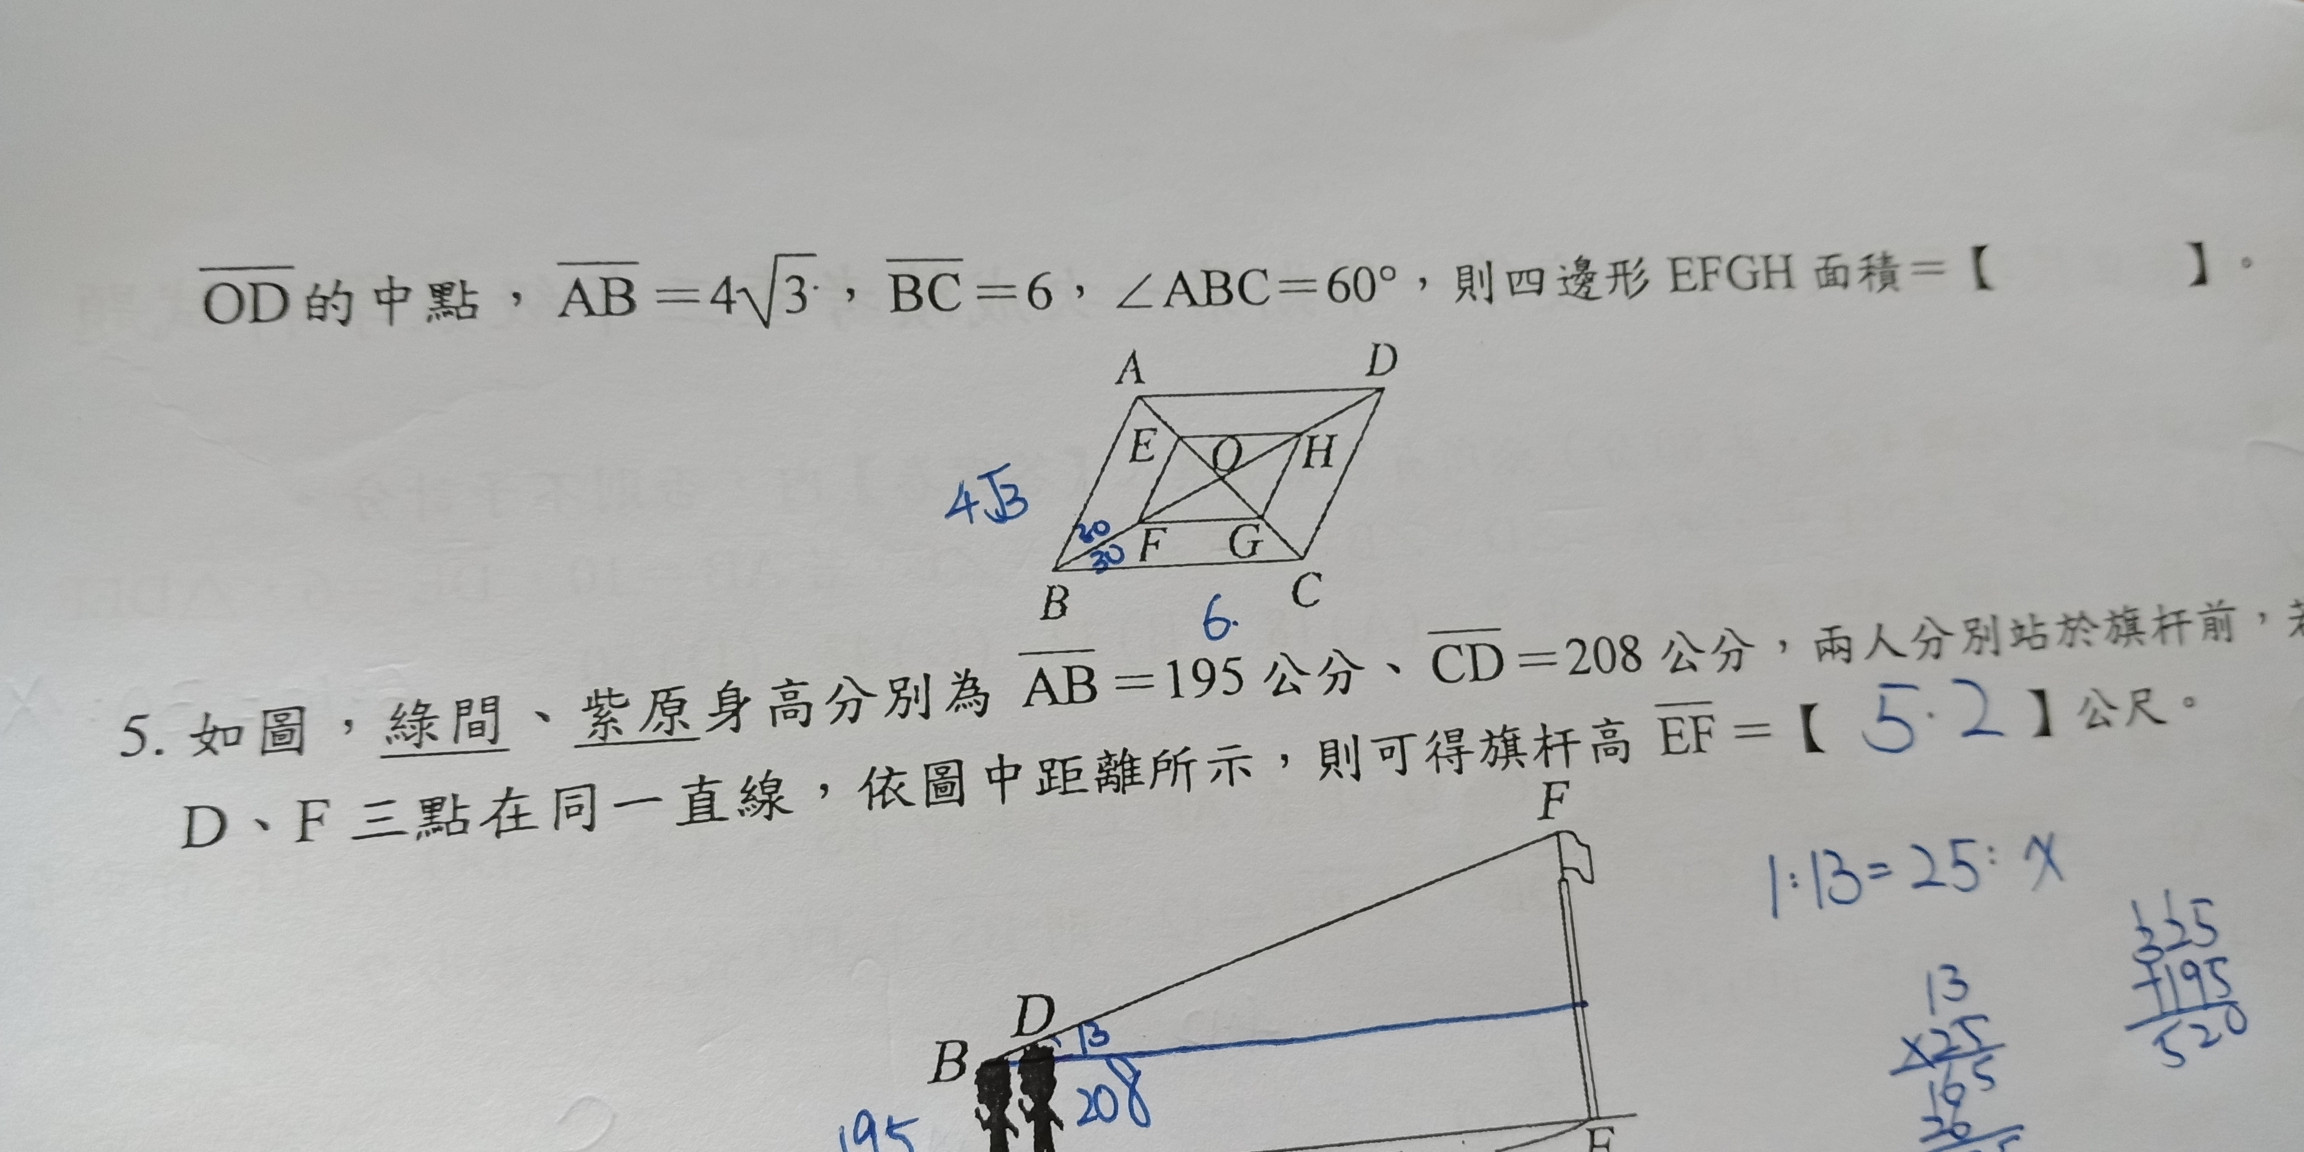 OD的中點，AB=4√3，BC=6，∠ABC=60°，則四邊形EFGH面積=【　　】。
A D
E O H
4√3
30
30 F G
B C
6.
5. 如圖，綠間、紫原身高分別為 AB=195公分、CD=208公分，兩人分別站於旗杆前，若
D、F三點在同一直線，依圖中距離所示，則可得旗杆高 EF=【 5.2 】公尺。
F
1:13=25:x
325
+195
520
13
×25
165
26
D
B 13
208
195
E